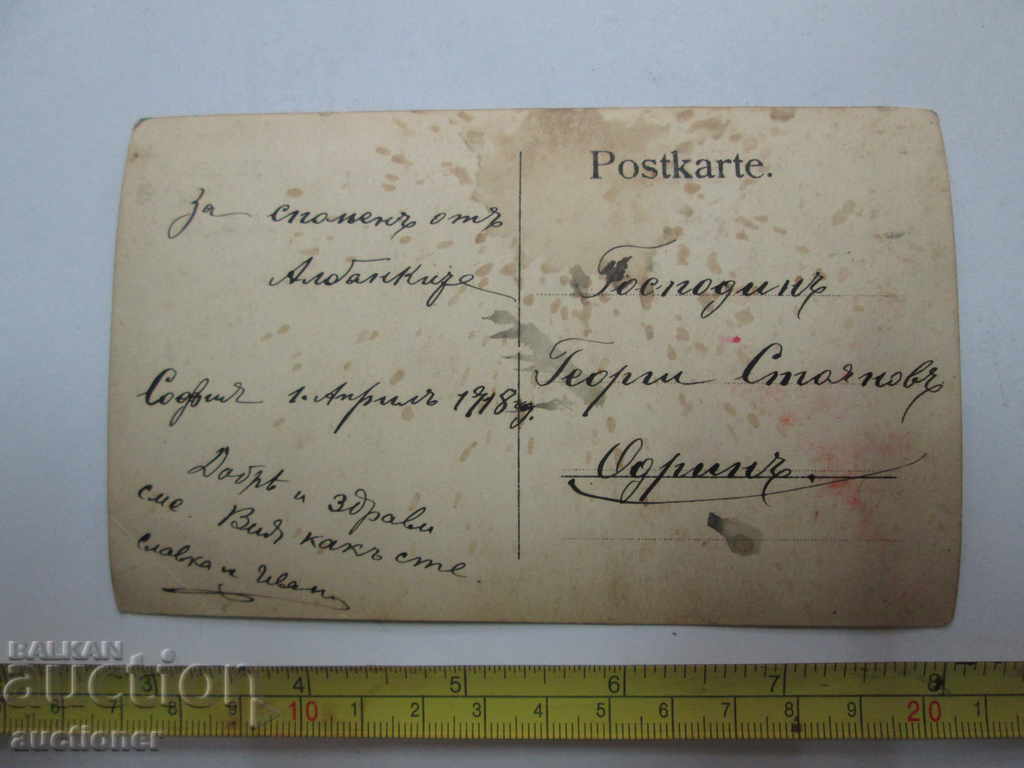 Postkarte.
За споменъ отъ
Албанките
София 1. Априлъ 1918 год.
Добрѣ и здрави
сме. Вия какъ сте.
Славка и Иван
Господинъ
Георги Стояновъ
Одринъ.
BALKAN
auction
auctioner
6 7 8 9 10 1 2 3 4 5 6 7 8 9 20 1
3 4 5 6 7 8